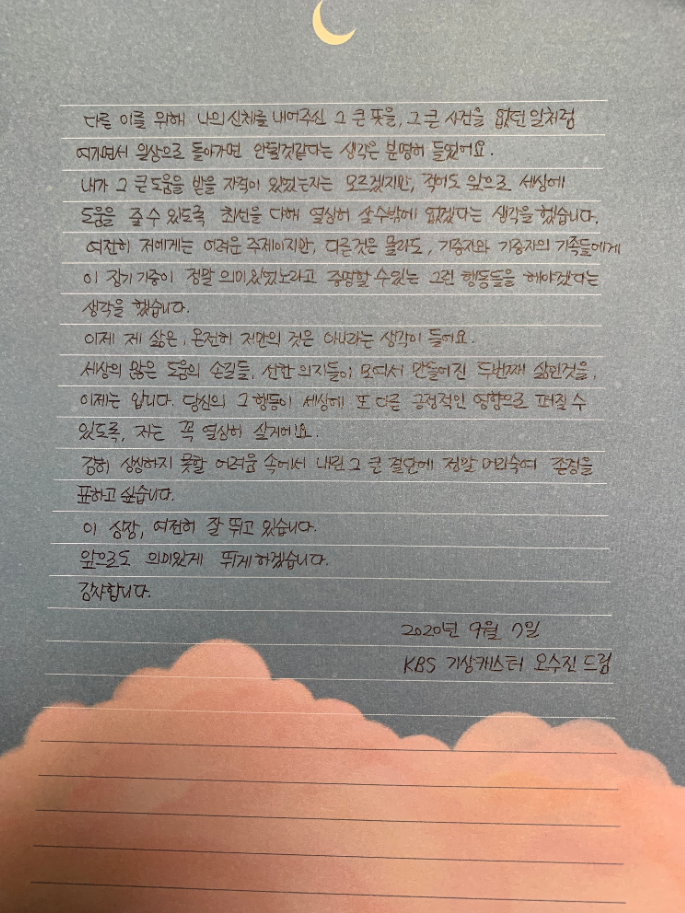 다른 이를 위해 나의 신체를 내어주신 그 큰 뜻을, 그 큰 사건을 없던 일처럼
여기면서 일상으로 돌아가면 안될것같다는 생각은 분명히 들었어요.
내가 그 큰 도움을 받을 자격이 있었는지는 모르겠지만, 적어도 앞으로 세상에
도움을 줄 수 있도록 최선을 다해 열심히 살 수밖에 없겠다는 생각을 했습니다.
여전히 저에게는 어려운 주제이지만, 다른것은 몰라도, 기증자와 기증자의 가족들에게
이 장기기증이 정말 의미있었노라고 증명할 수 있는 그런 행동들을 해야겠다는
생각을 했습니다.
이제 제 삶은, 온전히 저만의 것은 아니라는 생각이 들어요.
세상의 많은 도움의 손길들, 선한 의지들이 모여서 만들어진 두번째 삶인것을,
이제는 압니다. 당신의 그 행동이 세상에 또 다른 긍정적인 영향으로 퍼질 수
있도록, 저는 꼭 열심히 살거예요.
감히 상상하지 못할 어려움 속에서 내린 그 큰 결단에 정말 머리숙여 존경을
표하고 싶습니다.
이 심장, 여전히 잘 뛰고 있습니다.
앞으로도 의미있게 뛰게하겠습니다.
감사합니다.
2020년 9월 7일
KBS 기상캐스터 오수진 드림